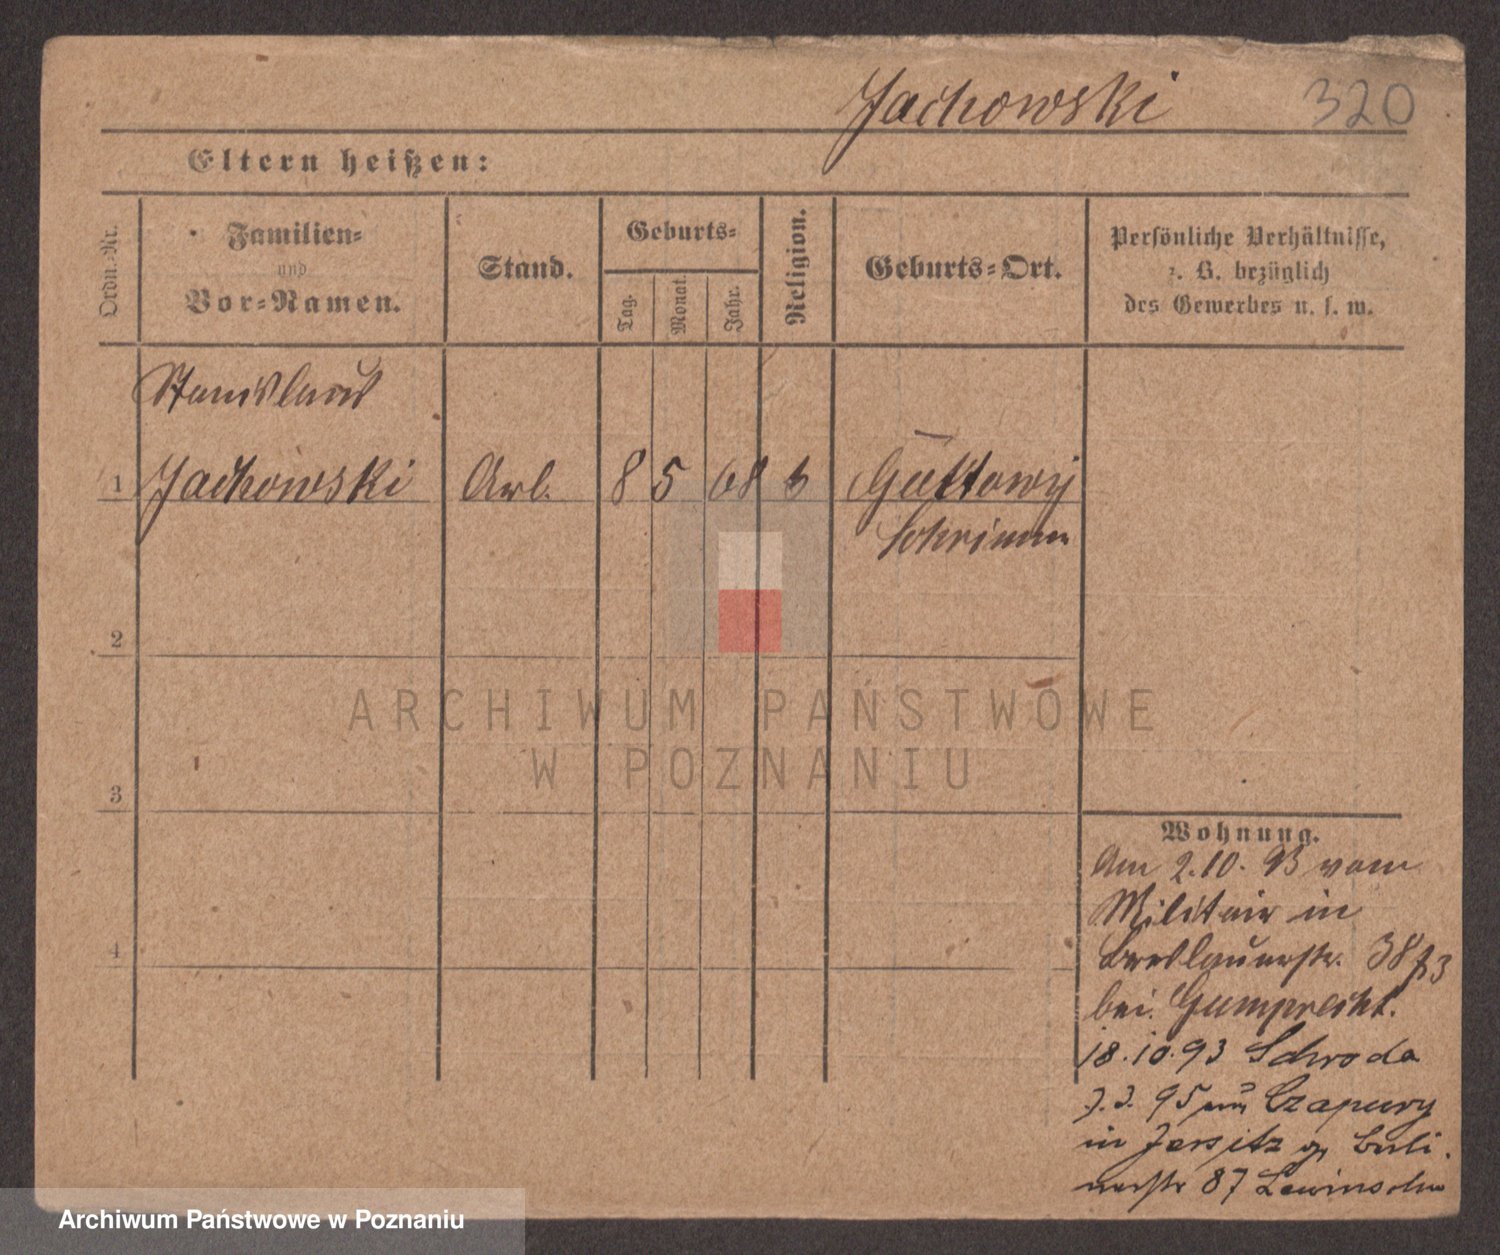 Jachowski 320
Eltern heißen:
Ordn.-Nr.
Familien-
und
Vor-Namen.
Stand.
Geburts-
Tag.
Monat.
Jahr.
Religion.
Geburts-Ort.
Persönliche Verhältnisse,
z. B. bezüglich
des Gewerbes u. s. w.
Stanislaus
1 Jachowski Arb. 8 5 68 Guttowy
Schrimm
2
3
4
Wohnung.
Am 2.10.93 vom
Militair in
Breslauerstr. 38
bei Gumprecht.
18.10.93 Schroda
95 Czapury
in Jersitz Berli-
nerstr 87 Lewinsohn
ARCHIWUM PAŃSTWOWE
W POZNANIU
Archiwum Państwowe w Poznaniu